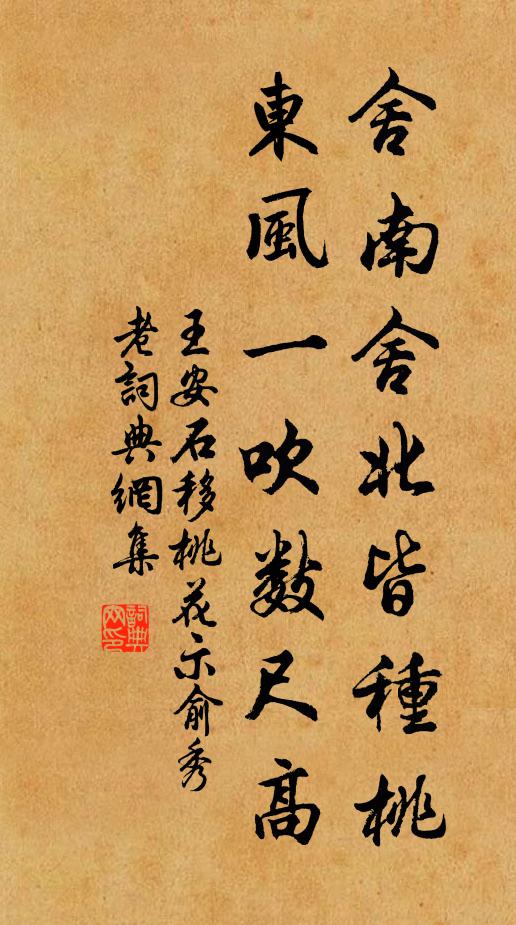 舍南舍北皆種桃
東風一吹數尺高
王安石移桃花示俞秀
老詞典網集
詞典網印